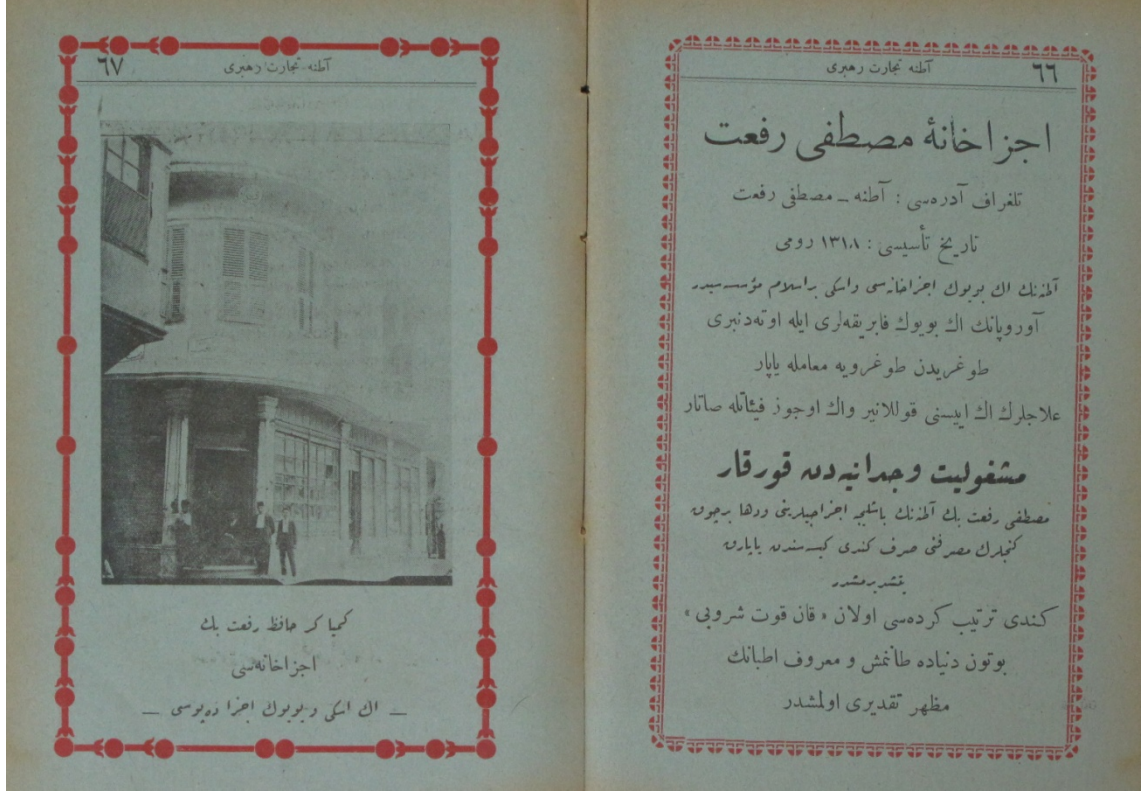 ٦٦
آطنه تجارت رهبری
اجزاخانهٔ مصطفی رفعت
تلغراف آدرەسی : آطنه ــ مصطفی رفعت
تاریخ تأسیسی : ١٣١٠٨ رومی
آطنه‌نك اك بویوك اجزاخانه‌سی واسكی براسلام مؤسسه‌سیدر
آوروپانك اك بویوك فابریقه‌لری ایله اوته‌دنبری
طوغریدن طوغرویه معامله یاپار
علاجلرك اك اییسنی قوللانیر واك اوجوز فیئاتله صاتار
مشغولیت وجدانیه‌دن قورقار
مصطفی رفعت بك آطنه‌نك باشلیجه اجزاجیلرینی ودها برچوق
كنجلرك مصرفنی صرف كندی كیسه‌سندن یاپارق
یتشدیرمشدر
كندی ترتیب كرده‌سی اولان « قان قوت شروبی »
بوتون دنیاده طانمش و معروف اطبانك
مظهر تقدیری اولمشدر
٦٧
آطنه تجارت رهبری
كمیاكر حافظ رفعت بك
اجزاخانه‌سی
ــ اك اسكی وبویوك اجزا ده‌پوسی ــ